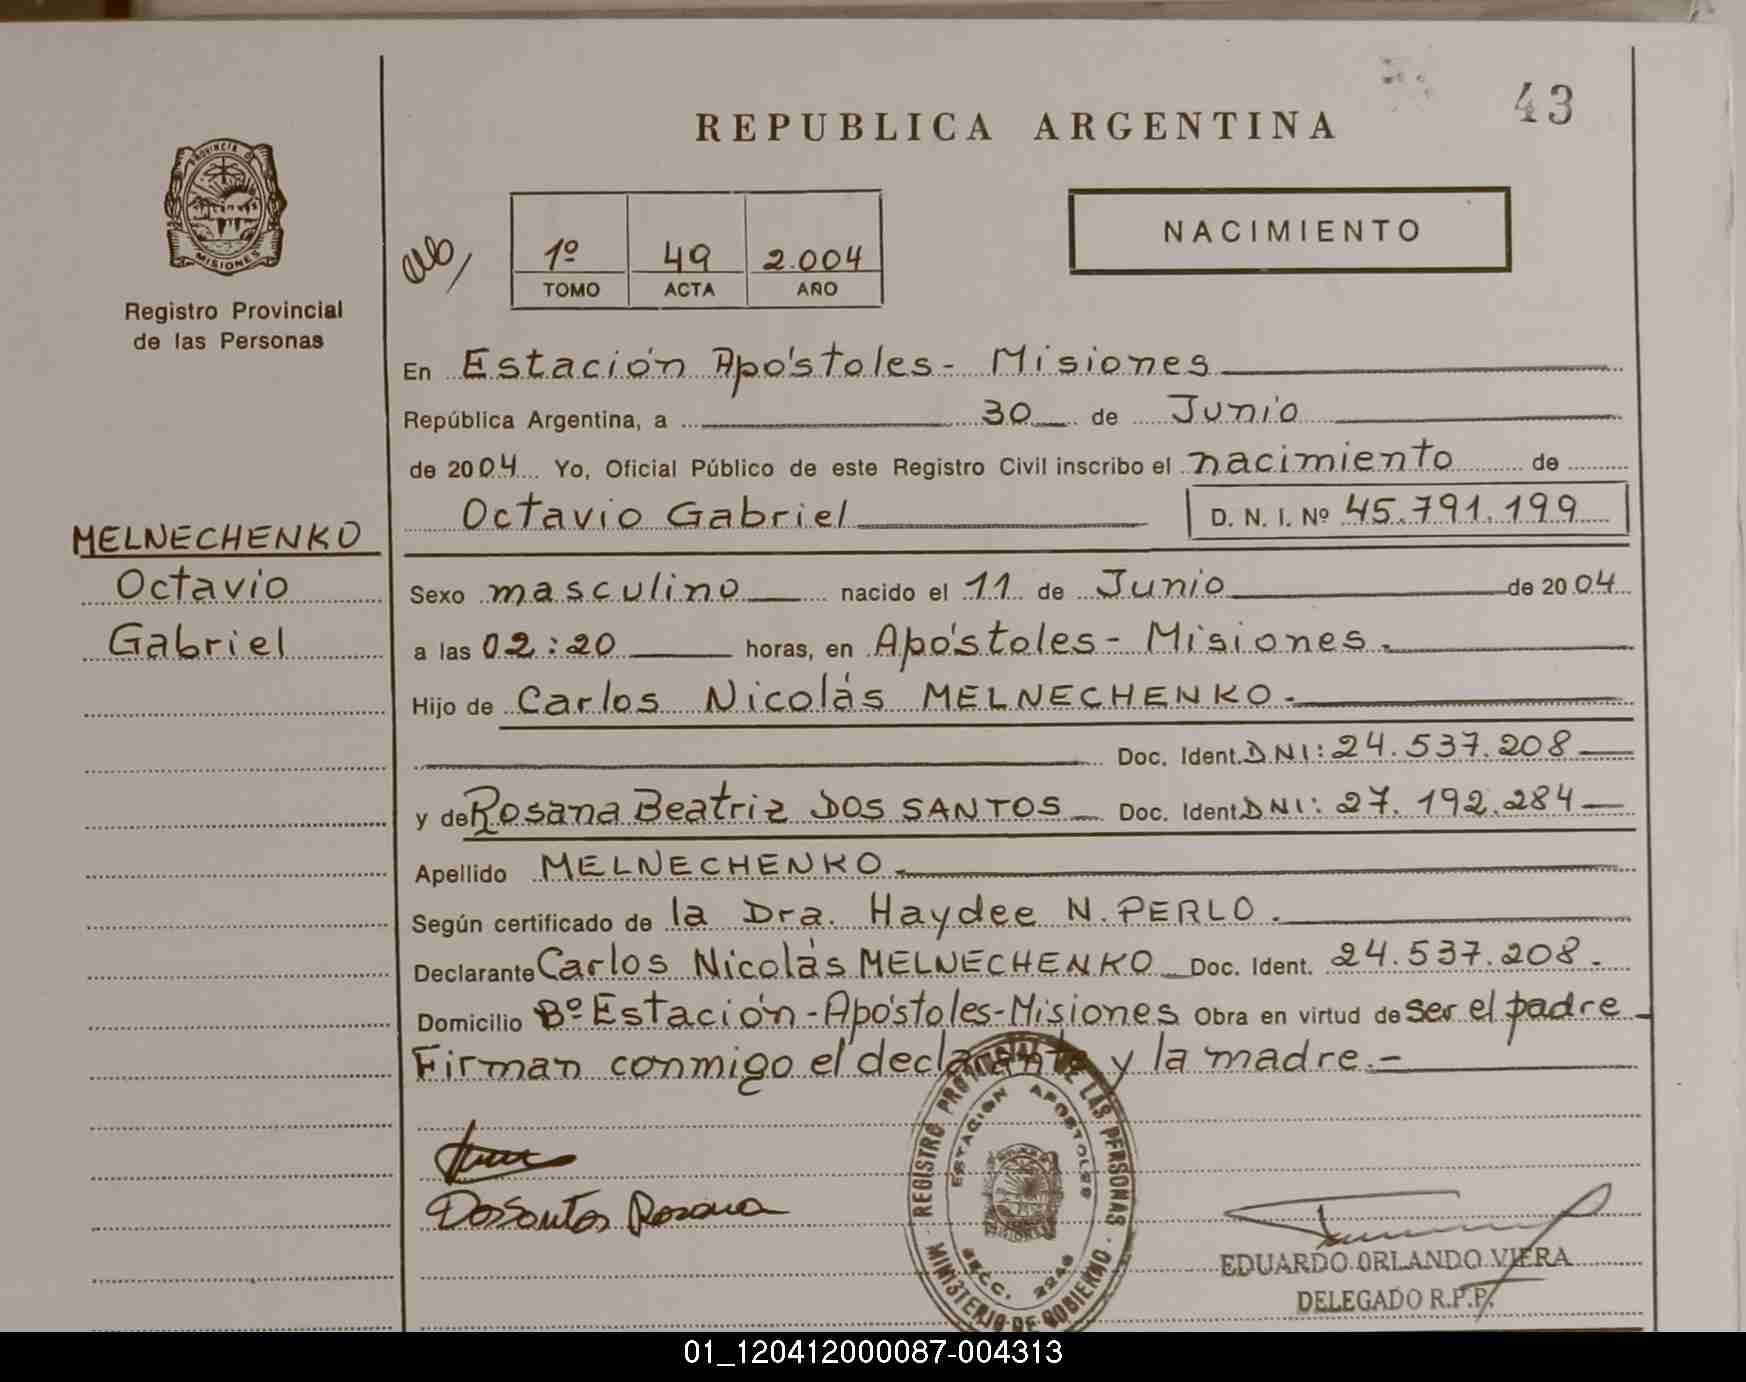 43
REPUBLICA ARGENTINA
PROVINCIA DE
MISIONES
Registro Provincial
de las Personas
1º 49 2.004
TOMO ACTA AÑO
NACIMIENTO
En Estación Apóstoles - Misiones
República Argentina, a 30 de Junio
de 2004 Yo, Oficial Público de este Registro Civil inscribo el nacimiento de
Octavio Gabriel D. N. I. Nº 45.791.199
MELNECHENKO
Octavio
Gabriel
Sexo masculino nacido el 11 de Junio de 2004
a las 02:20 horas, en Apóstoles - Misiones.
Hijo de Carlos Nicolás MELNECHENKO.
Doc. Ident. DNI: 24.537.208
y de Rosana Beatriz DOS SANTOS Doc. Ident DNI: 27.192.284
Apellido MELNECHENKO.
Según certificado de la Dra. Haydee N. PERLO.
Declarante Carlos Nicolás MELNECHENKO Doc. Ident. 24.537.208.
Domicilio Bº Estación - Apóstoles - Misiones Obra en virtud de ser el padre
Firman conmigo el declarante y la madre.-
DosSantos Rosana
REGISTRO PROVINCIAL DE LAS PERSONAS
ESTACION APOSTOLES
MINISTERIO DE GOBIERNO
EDUARDO ORLANDO VIERA
DELEGADO R.P.P.
01_120412000087-004313